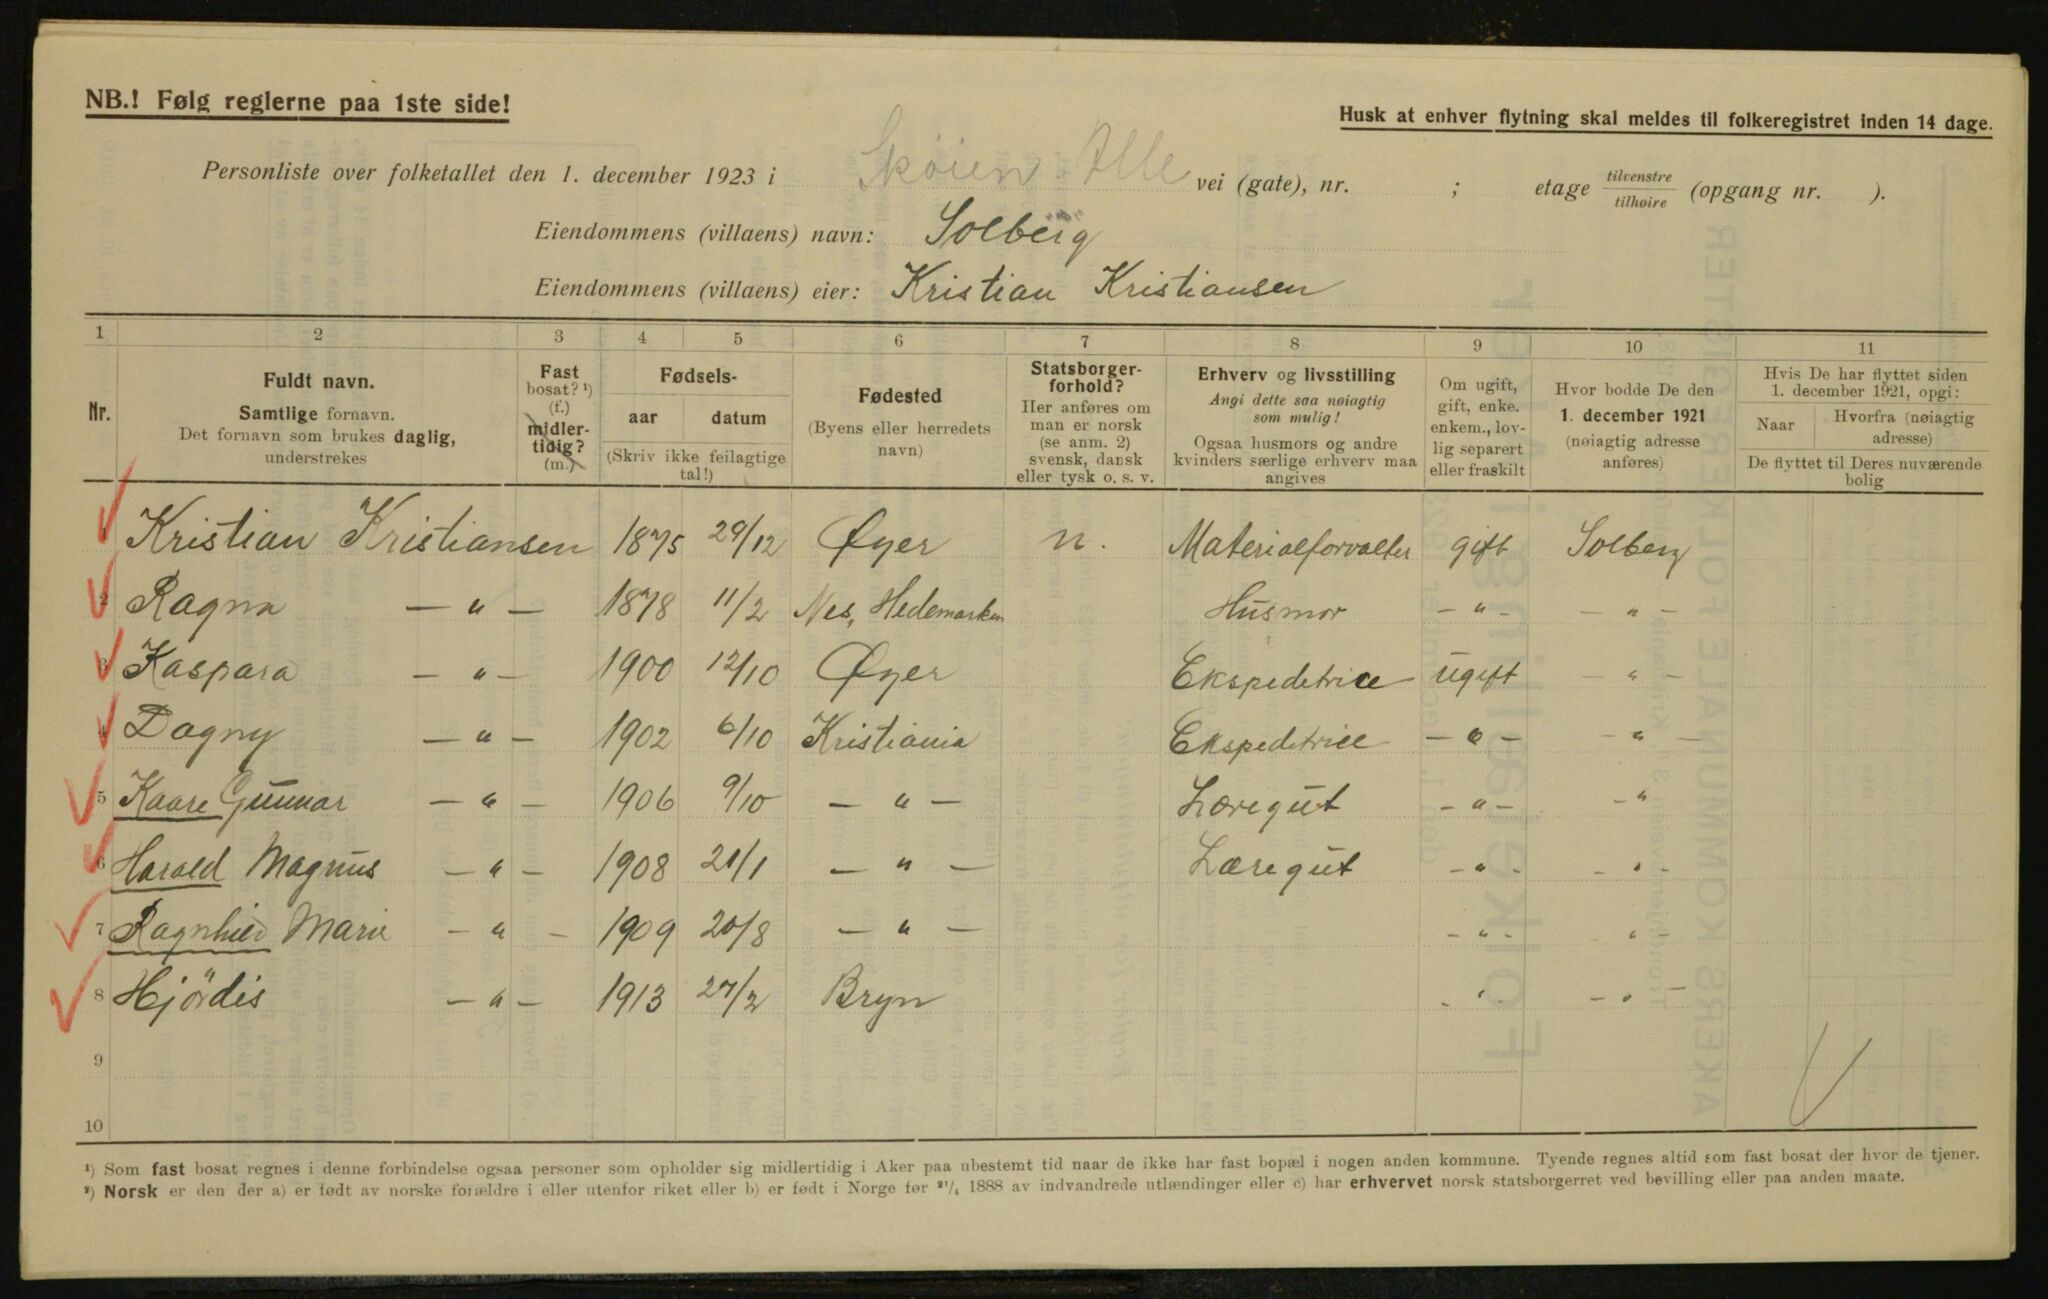 NB.! Følg reglerne paa 1ste side!
Husk at enhver flytning skal meldes til folkeregistret inden 14 dage.
Personliste over folketallet den 1. december 1923 i Skøien Alle vei (gate), nr. ; etage tilvenstre / tilhøire (opgang nr. ).
Eiendommens (villaens) navn: Solberg
Eiendommens (villaens) eier: Kristian Kristiansen
1 2 3 4 5 6 7 8 9 10 11
Nr.
Fuldt navn.
Samtlige fornavn.
Det fornavn som brukes daglig,
understrekes
Fast
bosat? ¹)
(f.)
midler-
tidig?
(m.)
Fødsels-
aar datum
(Skriv ikke feilagtige
tal!)
Fødested
(Byens eller herredets
navn)
Statsborger-
forhold?
Her anføres om
man er norsk
(se anm. 2)
svensk, dansk
eller tysk o. s. v.
Erhverv og livsstilling
Angi dette saa nøiagtig
som mulig!
Ogsaa husmors og andre
kvinders særlige erhverv maa
angives
Om ugift,
gift, enke.
enkem., lov-
lig separert
eller fraskilt
Hvor bodde De den
1. december 1921
(nøiagtig adresse
anføres)
Hvis De har flyttet siden
1. december 1921, opgi:
Naar Hvorfra (nøiagtig
adresse)
De flyttet til Deres nuværende
bolig
1 Kristian Kristiansen 1875 29/12 Øyer n. Materialforvalter gift Solberg
2 Ragna — " — 1878 11/2 Nes, Hedemarken Husmor — " — — " —
3 Kaspara — " — 1900 12/10 Øyer Ekspeditrice ugift — " —
4 Dagny — " — 1902 6/10 Kristiania Ekspeditrice — " — — " —
5 Kaare Gunnar — " — 1906 9/10 — " — Læregut — " — — "
6 Harald Magnus — " — 1908 21/1 — " — Læregut — " - - " -
7 Ragnhild Marie — " — 1909 20/8 — " — - " - - " -
8 Hjördis — " — 1913 27/2 Bryn - " - " —
9
10
¹) Som fast bosat regnes i denne forbindelse ogsaa personer som opholder sig midlertidig i Aker paa ubestemt tid naar de ikke har fast bopæl i nogen anden kommune. Tyende regnes altid som fast bosat der hvor de tjener.
²) Norsk er den der a) er født av norske forældre i eller utenfor riket eller b) er født i Norge før ²¹/₄ 1888 av indvandrede utlændinger eller c) har erhvervet norsk statsborgerret ved bevilling eller paa anden maate.